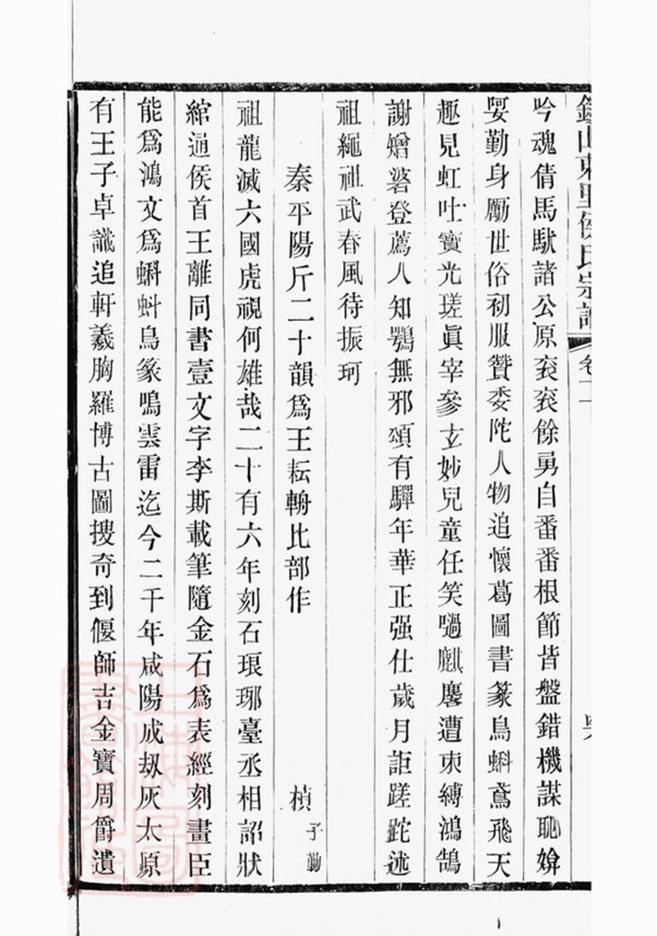 山東里侯氏宗譜 卷二
吟魂倩馬馱諸公原袞袞餘勇自番番根節皆盤錯機謀恥媕
娿勤身勵世俗初服贊委陀人物追懷葛圖書篆鳥蝌鳶飛天
趣見虹吐寶光瑳眞宰參玄妙兒童任笑嗢麒麐遭束縛鴻鵠
謝矰碆登薦人知鶚無邪頌有驒年華正强仕歲月詎蹉跎述
祖繩祖武春風待振珂
秦平陽斤二十韻爲王耘軪比部作 楨子勤
祖龍滅六國虎視何雄哉二十有六年刻石琅琊臺丞相詔狀
綰逼侯首王離同書壹文字李斯載筆隨金石爲表經刻畫臣
能爲鴻文爲蝌蚪鳥篆鳴雲雷迄今二千年咸陽成刼灰太原
有王子卓識追軒羲胸羅博古圖搜奇到偃師吉金寶周爵遺